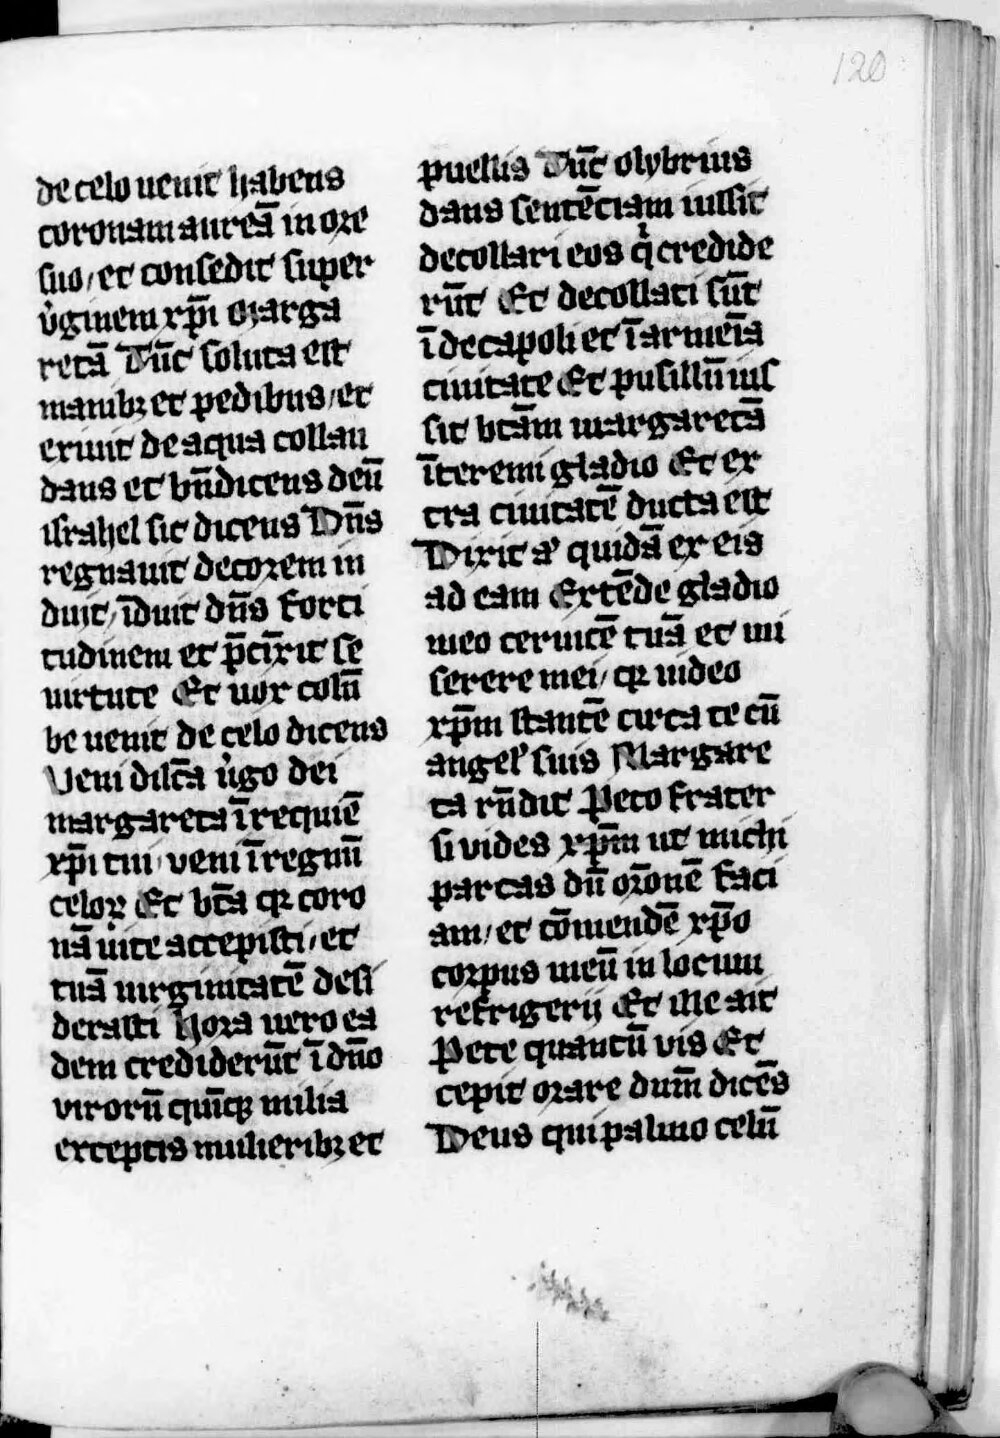 120
de celo uenit habens
coronam aureā in ore
suo / et consedit super
v̓ginem xp̄i Marga
retā Tūc soluta est
manibꝫ et pedibus / et
exiuit de aqua collau
dans et bn̄dicens deū
israhel sic dicens Dn̄s
regnauit decorem in
duit / īduit dn̄s forti
tudinem et p̄cīxit se
uirtute Et uox colū
be uenit de celo dicens
Veni dilc̄a v̓go dei
margareta ī requiē
xp̄i tui / veni ī regnū
celoꝝ Et bt̄a qꝛ coro
nā uite accepisti / et
tuā uirginitatē desi
derasti Hora uero ea
dem crediderūt ī dn̄o
virorū quīqꝫ milia
exceptis mulieribꝫ et
puellis Tūc olybrius
dans sentēciam iussit
decollari eos qͥ credide
rūt Et decollati sūt
ī decapoli et ī armeīa
ciuitate Et pusillū ius
sit bt̄am margaretā
īteremi gladio Et ex
tra ciuitatē ducta est
Dixit aͬ quidā ex eis
ad eam Extēde gladio
meo ceruicē tuā et mi
serere mei / qꝛ uideo
xp̄m stantē circa te cū
angel̓ suis Margare
ta rn̄dit Peto frater
si vides xp̄m ut michi
parcas dū orōnē faci
am / et cōmendē xp̄o
corpus meū in locum
refrigerij Et ille ait
Pete quantū vis Et
cepit orare dum̄ dicēs
Deus qui palmo celū